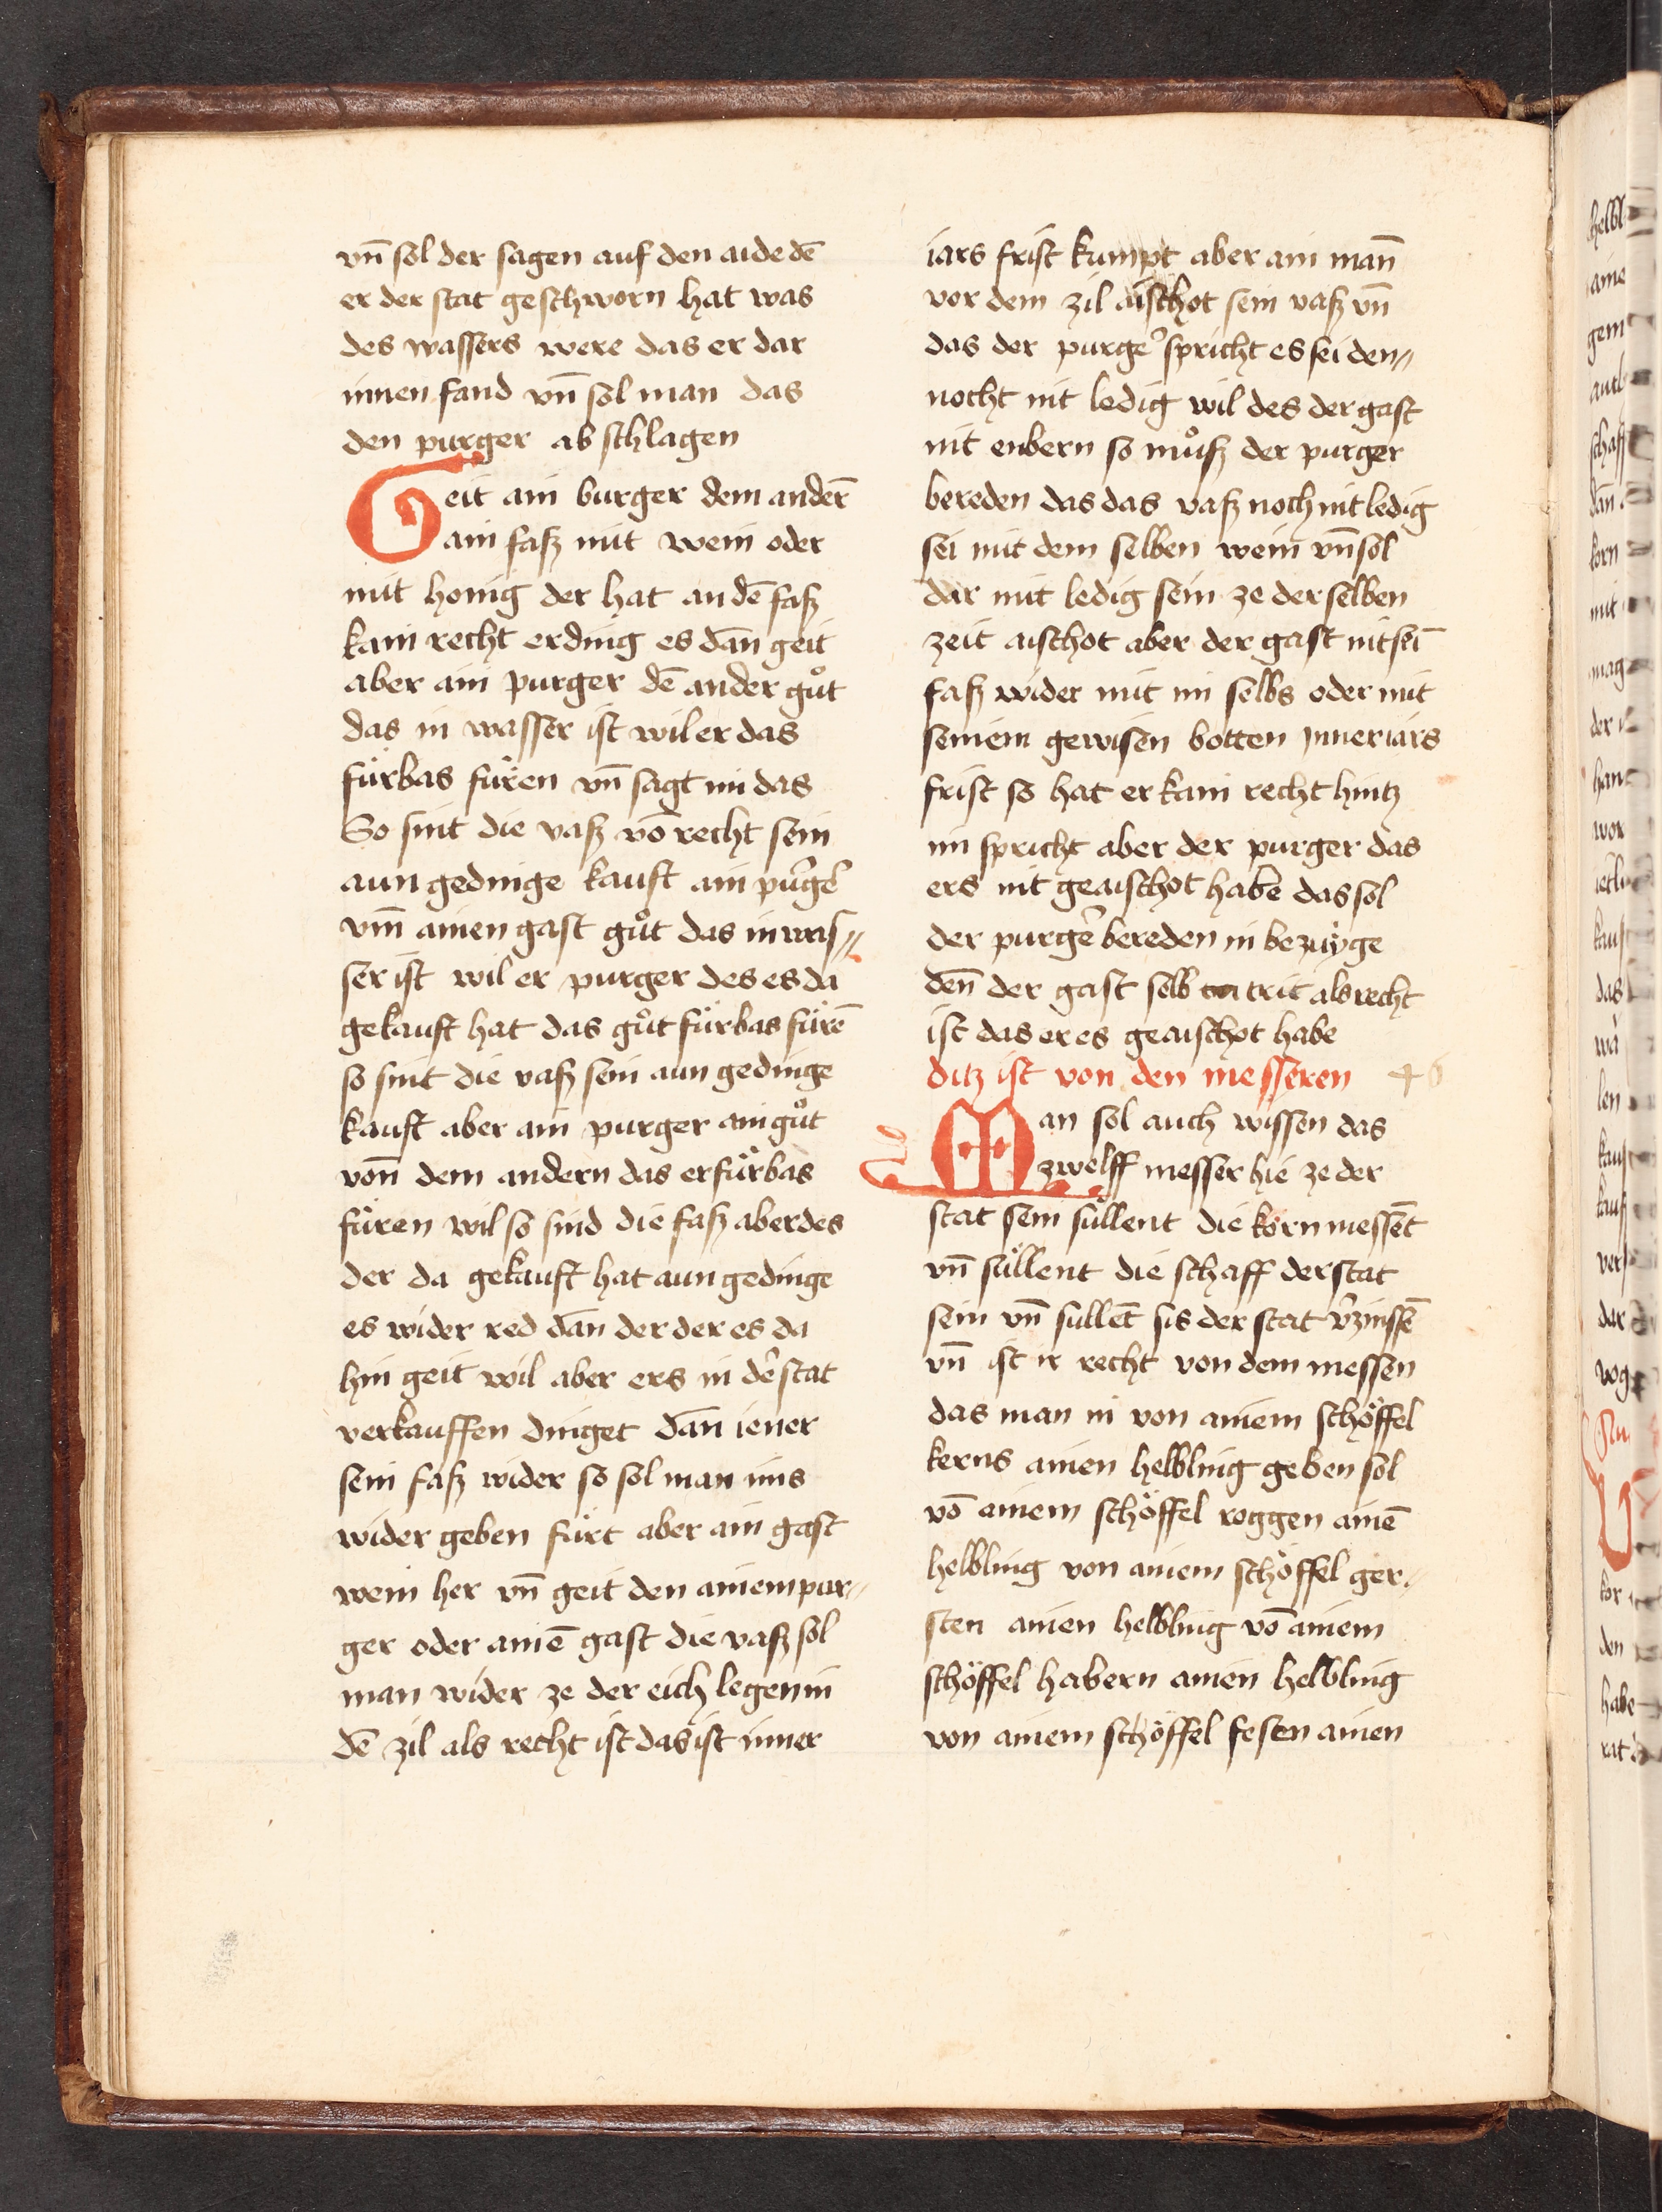 vn̄ sol der sagen auf den aide dē
er der stat geschworn hat was
des wassers were das er dar
innen fand vn̄ sol man das
den purger ab schlagen
Geit ain burger dem anderē
ain fasz mit wein oder
mit honig der hat an dē fasz
kain recht er ding es dan̄ geit
aber ain purger dē ander gůt
das in wasser ist wil er das
fürbas füren vn̄ sagt im das
So sint die vasz vō recht sein
aun gedinge kauft ain purgeʼ
vm̄ ainen gast gůt das in was⸗
ser ist wil er purger des es da
gekauft hat das gůt fürbas fürē
so sint die vasz sein aun gedinge
kauft aber ain purger ain gůt
von̄ dem andern das er fürbas
füren wil so sind die fasz aber des
der da gekauft hat aun gedinge
es wider red dan̄ der der es da
hin geit wil aber ers in deʼ stat
verkauffen dinget dan̄ iener
sein fasz wider so sol man ims
wider geben fürt aber ain gast
wein her vn̄ geit den ainem pur⸗
ger oder ainē gast die vasz sol
man wider ze der eich legen in
dē zil als recht ist das ist inner
iars frist kumpt aber ain man̄
vor dem zil aischot sein vasz vn̄
das der purgeʼ spricht es sei den⸗
nocht nit ledig wil des der gast
nit enbern so můsz der purger
bereden das das vasz noch nit ledig
sei mit dem selben wein vn̄ sol
dar mit ledig sein ze der selben
zeit aischot aber der gast nit seī
fasz wider mit im selbs oder mit
seinem gewisen botten inner iars
frist so hat er kain recht hintz
im spricht aber der purger das
ers nit geaischot habe das sol
der purgeʼ bereden in bezüyge
den̄ der gast selb trit als recht
ist das er es geaischot habe
ditz ist von den messeren 46
Man sol auch wissen das
zwelff messer hie ze der
stat sein süllent die korn messēt
vn̄ süllent die schaff der stat
sein vn̄ sullēt sis der stat vʼzinssē
vn̄ ist ir recht von dem messen
das man in von ainem schöffel
kerns ainen helbling geben sol
vō ainem schöffel roggen ainē
helbling von ainem schöffel ger⸗
sten ainen helbling vō ainem
schöffel habern ainen helbling
von ainem schöffel fesen ainen